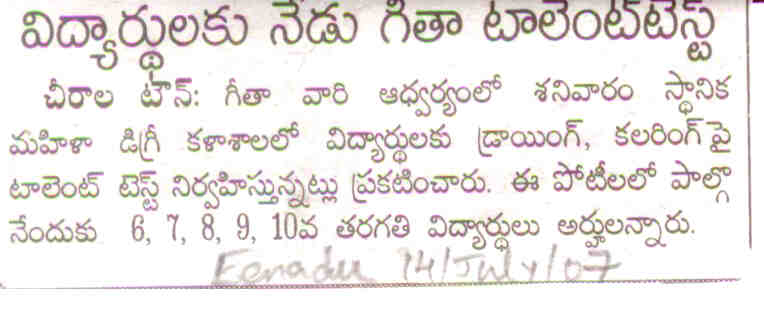 విద్యార్థులకు నేడు గీతా టాలెంట్‌టెస్ట్
చీరాల టౌన్: గీతా వారి ఆధ్వర్యంలో శనివారం స్థానిక
మహిళా డిగ్రీ కళాశాలలో విద్యార్థులకు డ్రాయింగ్, కలరింగ్‌పై
టాలెంట్ టెస్ట్ నిర్వహిస్తున్నట్లు ప్రకటించారు. ఈ పోటీలలో పాల్గొ
నేందుకు 6, 7, 8, 9, 10వ తరగతి విద్యార్థులు అర్హులన్నారు.
Eenadu 14/July/07